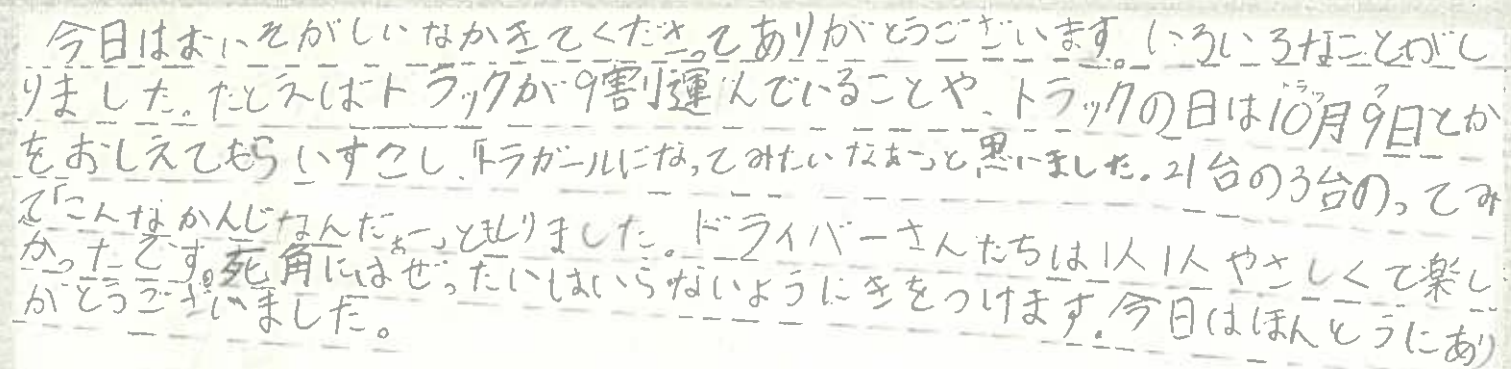 今日はおいそがしいなかきてくださってありがとうございます。いろいろなことがし
りました。たとえばトラックが9割運んでいることや、トラックの日は10月9日とか
をおしえてもらいすこし、「トラガールになってみたいなぁーっと思いました。21台の3台のってみ
て「こんなかんじなんだぁーっとしりました。ドライバーさんたちは1人1人やさしくて楽し
かったです。死角にはぜったいはいらないようにきをつけます。今日はほんとうにあり
がとうございました。